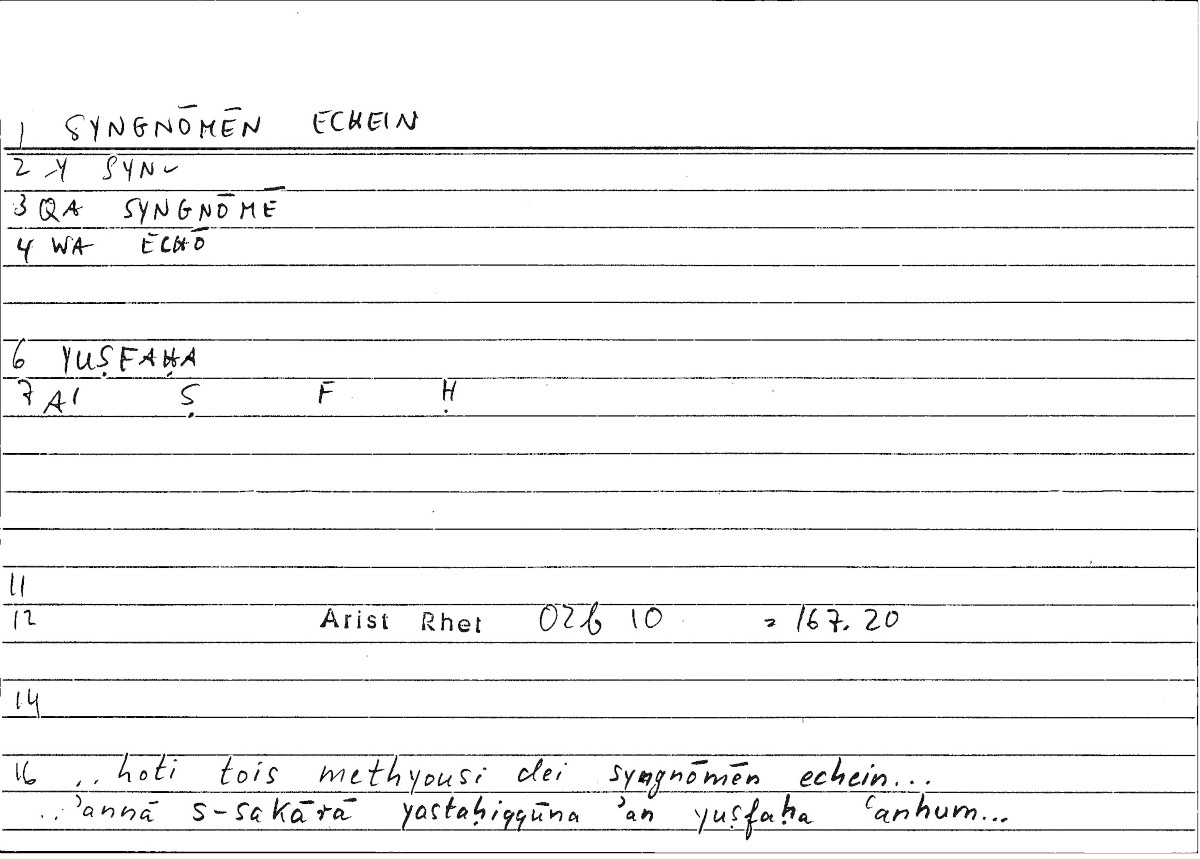 1 SYNGNŌMĒN ECHEIN
2 Y SYN
3 QA SYNGNŌMĒ
4 WA ECHŌ
6 YUṢFAḤA
7 AI Ṣ F Ḥ
11
12 Arist Rhet 02b 10 = 167.20
14
16 ..hoti tois methyousi dei syngnōmēn echein...
..ʾannā s-sakārā yastaḥiqqūna ʾan yuṣfaḥa ʿanhum...